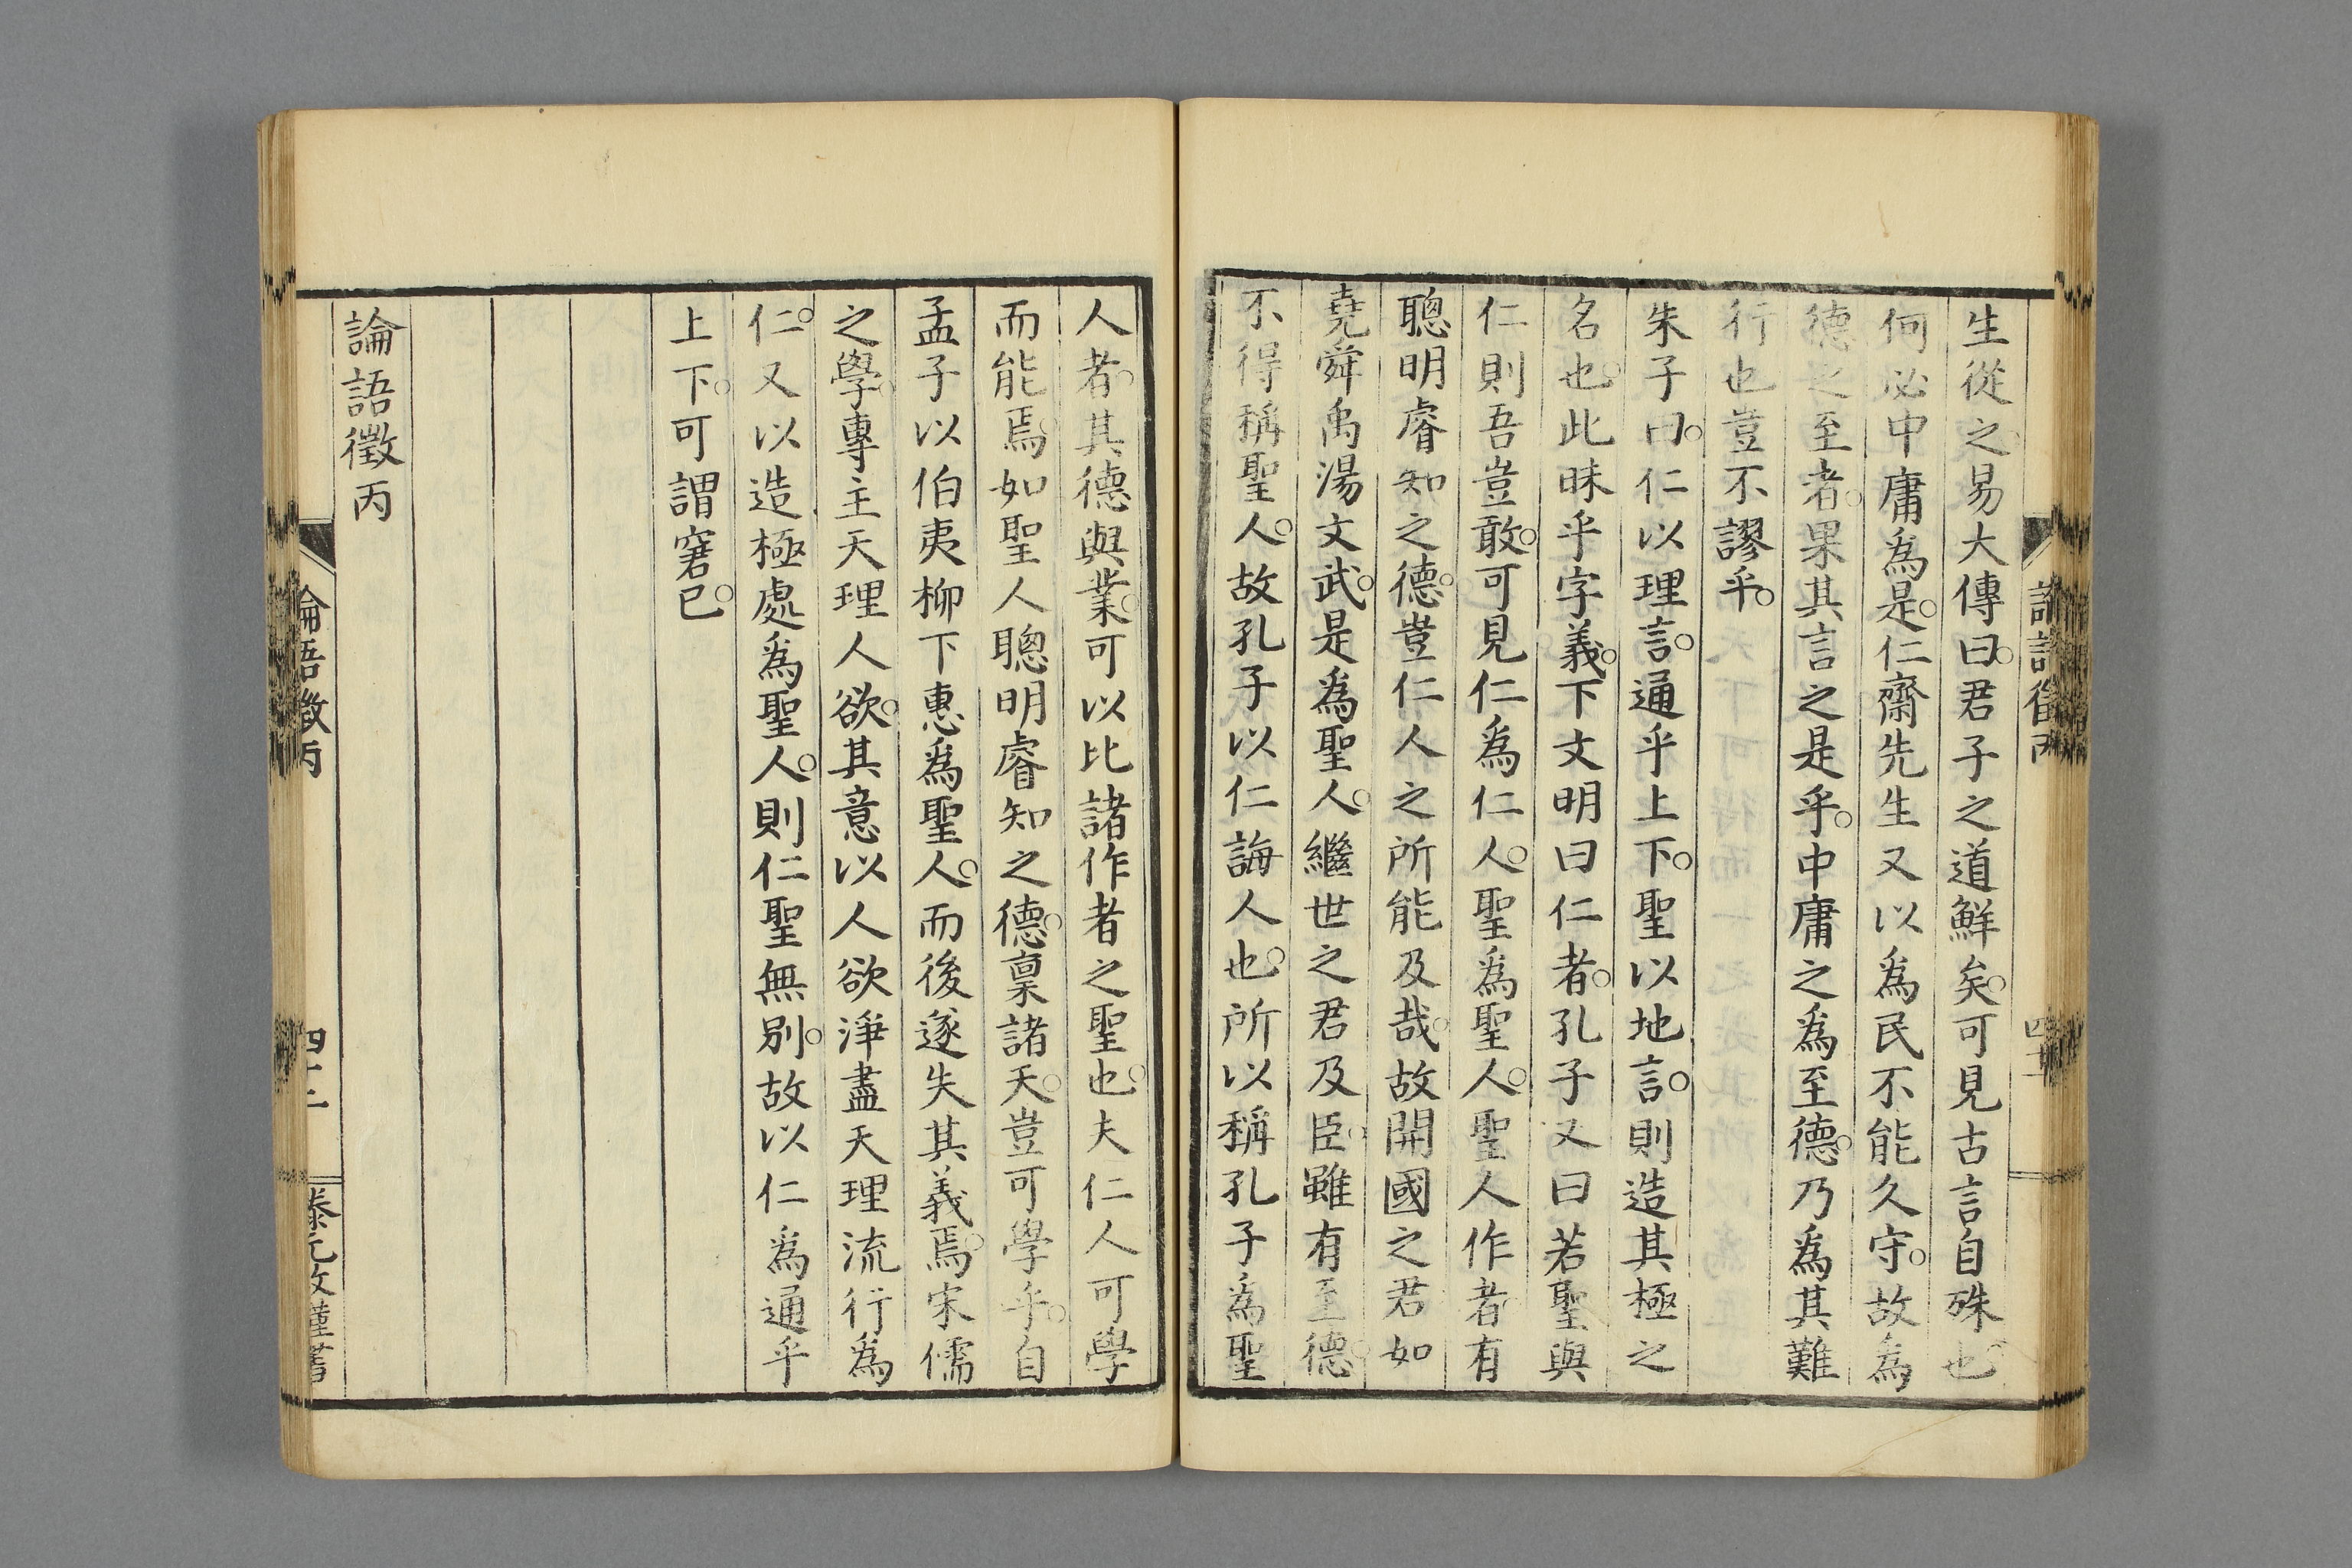 生從之易大傳曰君子之道鮮矣可見古言自殊也
何必中庸爲是仁齋先生又以爲民不能久守故爲
德之至者果其言之是乎中庸之爲至德乃爲其難
行也豈不謬乎
朱子曰仁以理言通乎上下聖以地言則造其極之
名也此昧乎字義下文明曰仁者孔子又曰若聖與
仁則吾豈敢可見仁爲仁人聖爲聖人聖人作者有
聰明睿知之德豈仁人之所能及哉故開國之君如
堯舜禹湯文武是爲聖人繼世之君及臣雖有至德
不得稱聖人故孔子以仁誨人也所以稱孔子爲聖
人者其德與業可以比諸作者之聖也夫仁人可學
而能焉如聖人聰明睿知之德稟諸天豈可學乎自
孟子以伯夷柳下惠爲聖人而後遂失其義焉宋儒
之學專主天理人欲其意以人欲淨盡天理流行爲
仁又以造極處爲聖人則仁聖無別故以仁爲通乎
上下可謂窘已
論語徵丙
論語徵丙
四十二
滕元攷謹書